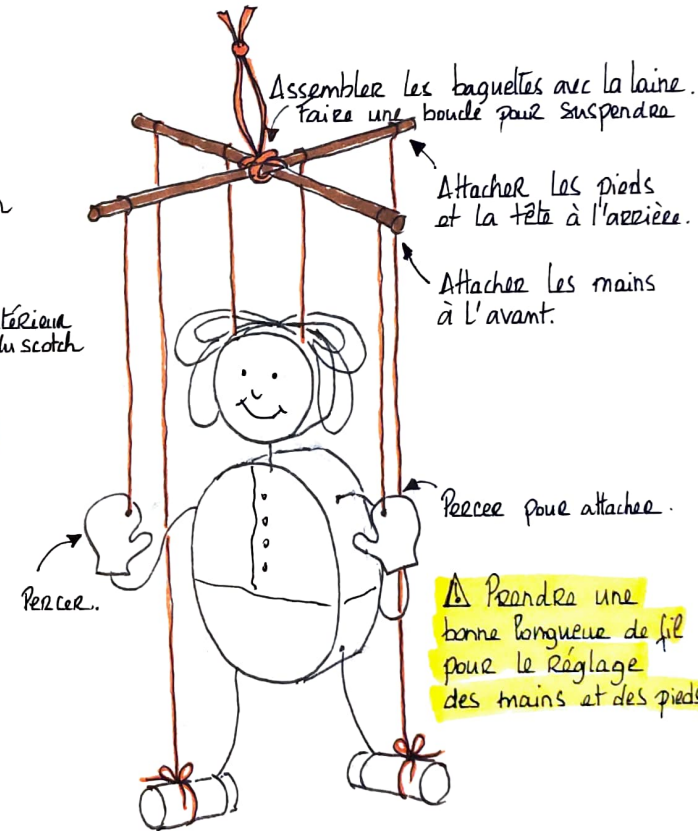 Assembler les baguettes avec la laine.
Faire une boucle pour suspendre
Attacher les pieds
et la tête à l'arrière.
Attacher les mains
à l'avant.
du scotch
Percer pour attacher.
Percer.
⚠ Prendre une
bonne longueur de fil
pour le réglage
des mains et des pieds